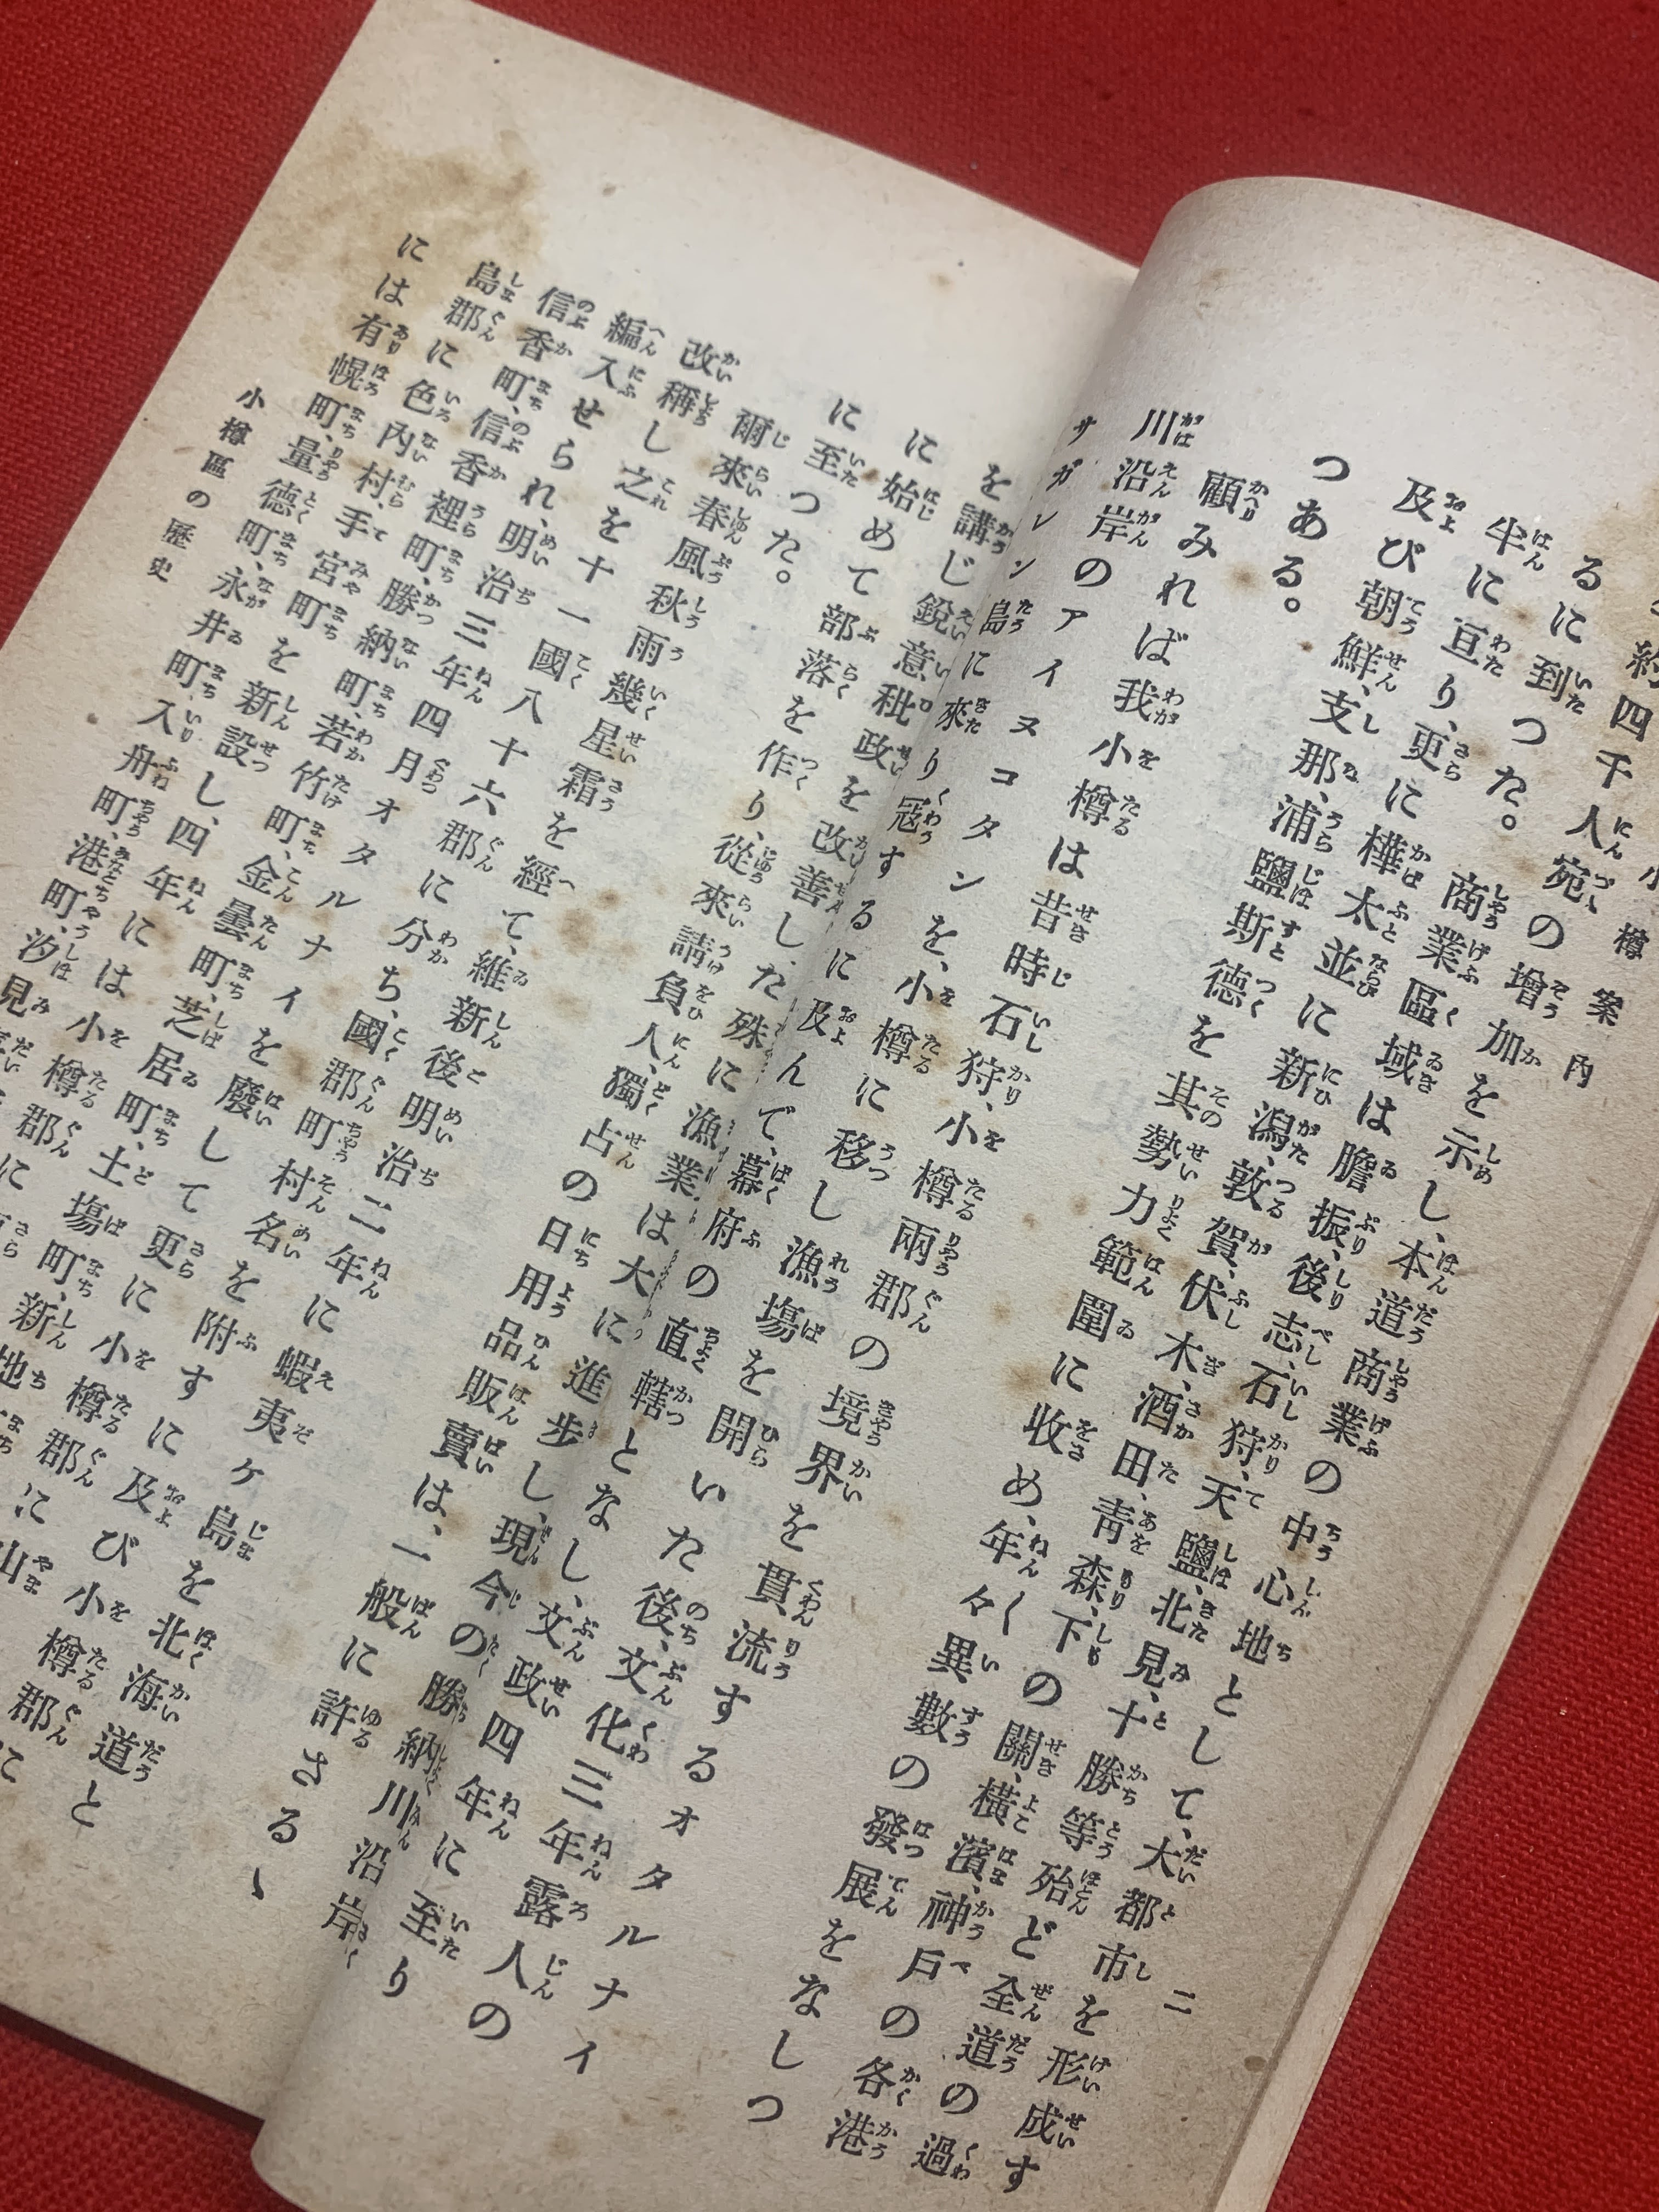 小樽案內　二
約四千人宛の增加を示し、本道商業の中心地として、大都市を形成す
るに到つた。商業區域は膽振、後志、石狩、天鹽、北見、十勝等殆ど全道の過
半に亘り、更に樺太並に新潟、敦賀、伏木、酒田、靑森、下の關、橫濱、神戶の各港
及び朝鮮、支那、浦鹽斯德を其勢力範圍に收め、年々異數の發展をなしつ
つある。
顧みれば我小樽は昔時石狩、小樽兩郡の境界を貫流するオタルナイ
川沿岸のアイヌコタンを、小樽に移し漁場を開いた後、文化三年露人の
サガレン島に來り寇するに及んで、幕府の直轄となし、文政四年に至り
を講じ銳意秕政を改善した殊に漁業は大に進步し、現今の勝納川沿岸
に始めて部落を作り、從來請負人、獨占の日用品販賣は、一般に許さるゝ
に至つた。
爾來春風秋雨幾星霜を經て、維新後明治二年に蝦夷ケ島を北海道と
改稱し之を十一國八十六郡に分ち、國郡町村名を附すに及び小樽郡に
編入せられ、明治三年四月オタルナイを廢して更に小樽郡に山
信香町、信香裡町、勝納町、若竹町、金曇町、芝居町、土場町、新地
島郡に色內村、手宮町を新設し、四年には小樽郡に
には有幌町、量德町、永井町、入舟町、港町、汐見
小樽區の歷史